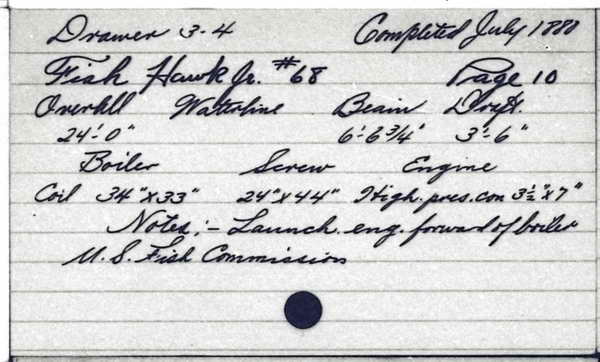 Drawer 3-4 Completed July 1880
Fish Hawk Jr. #68 Page 10
Overall Waterline Beam Draft.
24'-0" 6'-6 3/4" 3'-6"
Boiler Screw Engine
Coil 34"x33" 24"x44" High. pres. con 3½"x7"
Notes:- Launch. eng. forward of boiler
U.S. Fish Commission